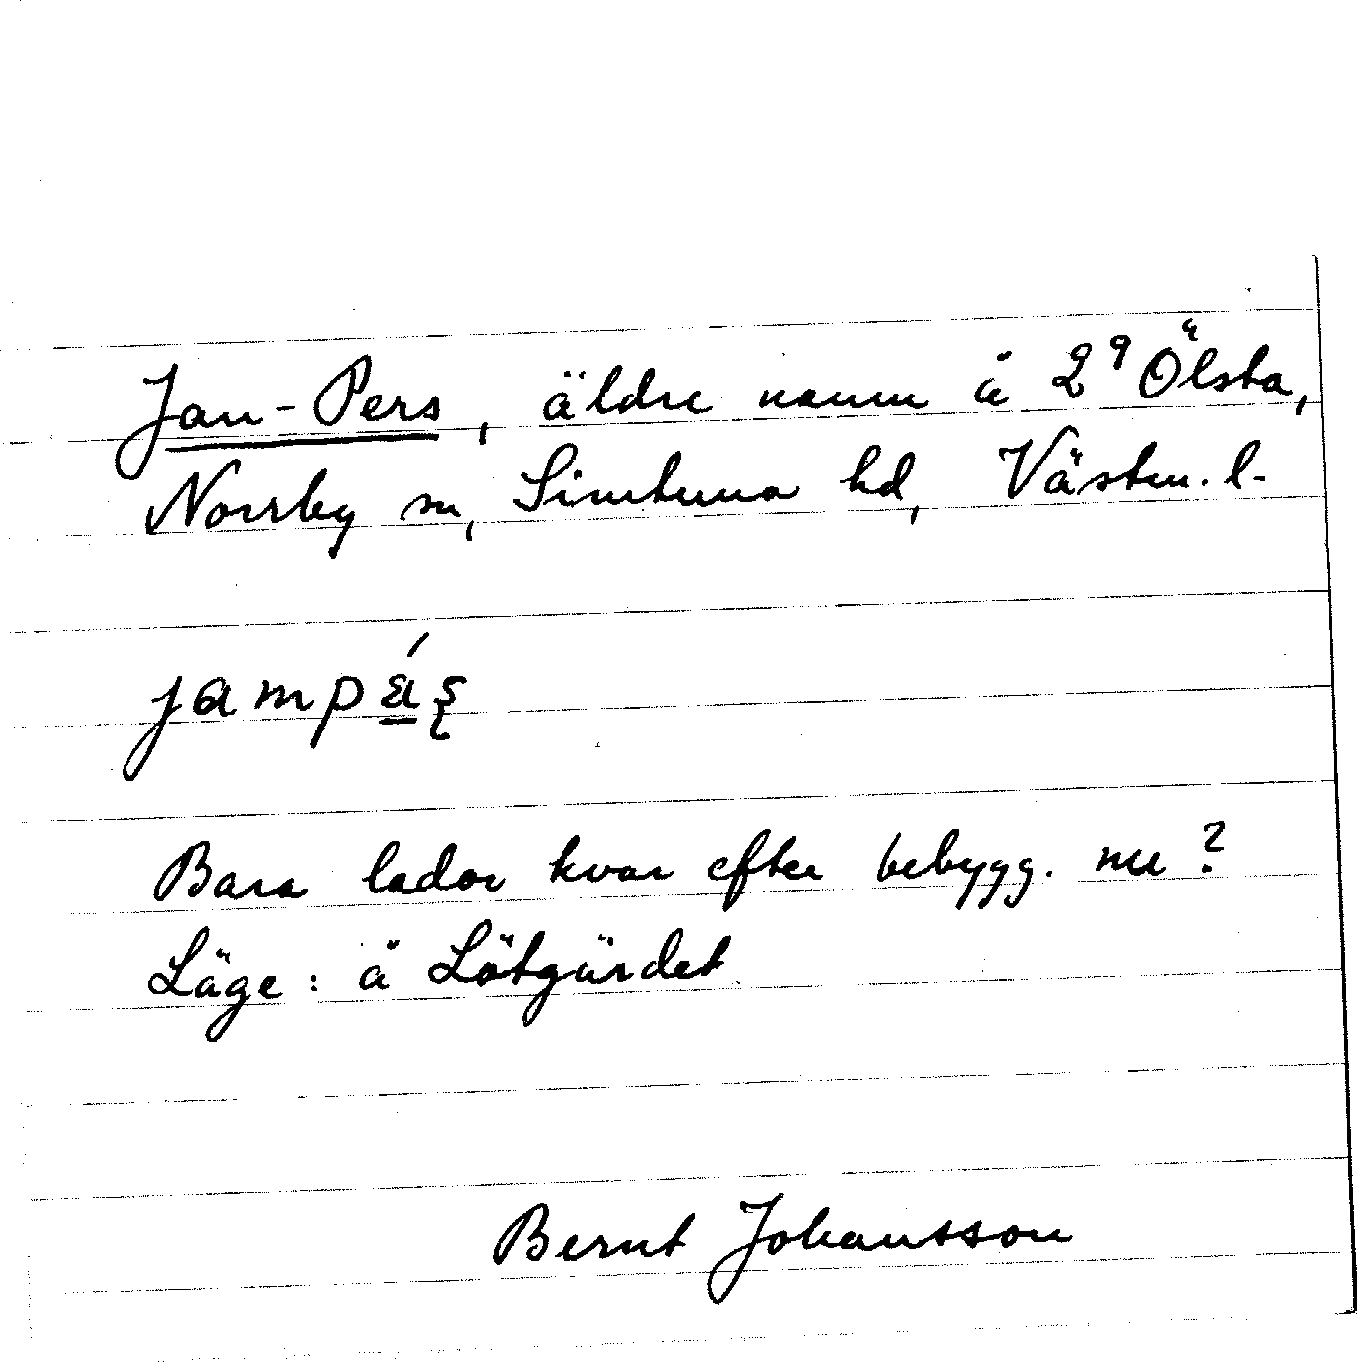 Jan-Pers, äldre namn å 2⁹ Ölsta,
Norrby sn, Simtuna hd, Västm. l.
Bara lador kvar efter bebygg. nu?
Läge: å Lötgärdet
Bernt Johansson